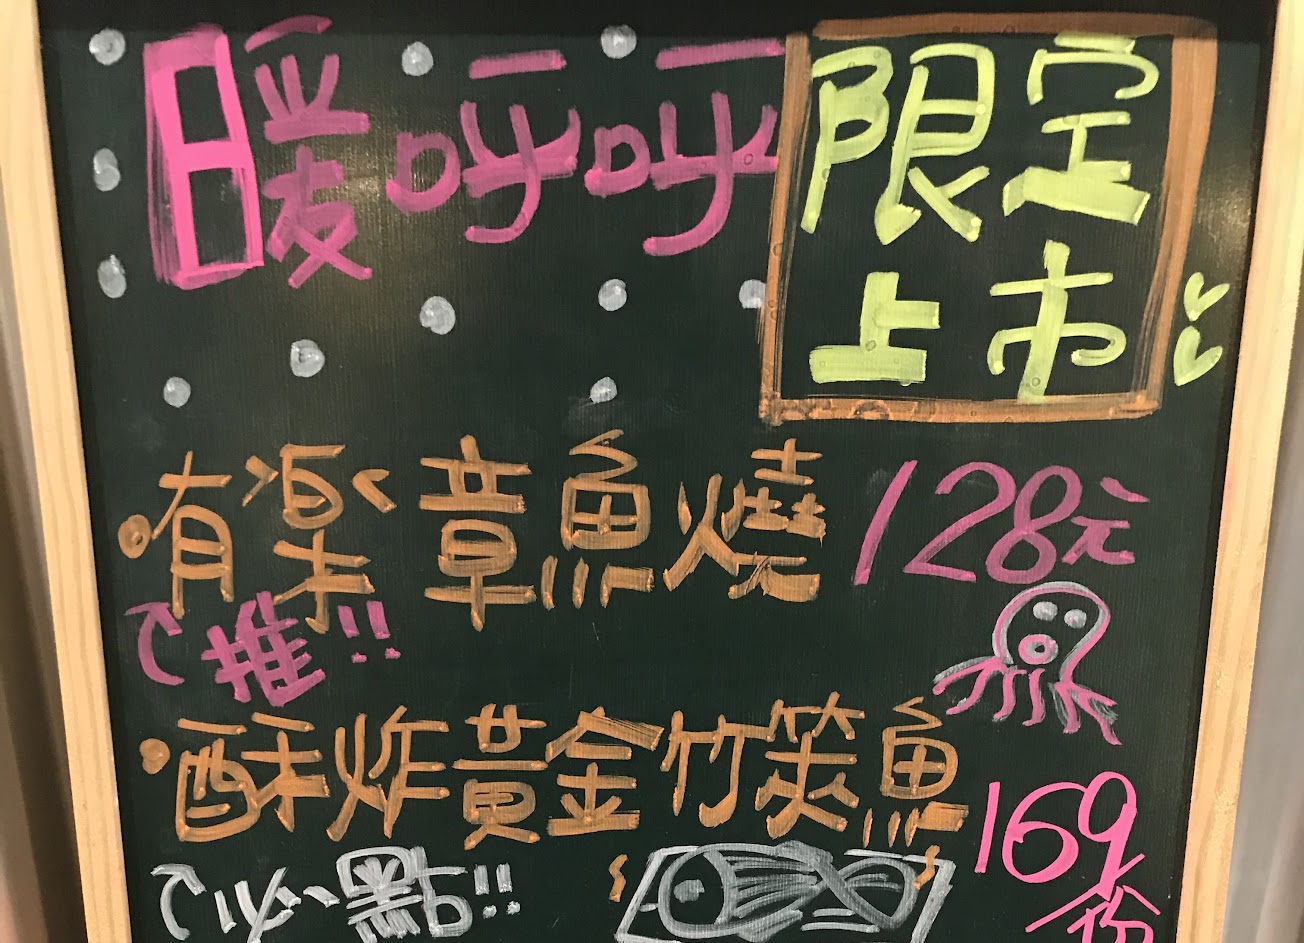 暖呼呼
限定
上市
有樂章魚燒 128元
推!!
酥炸黃金竹筴魚 169/份
必點!!